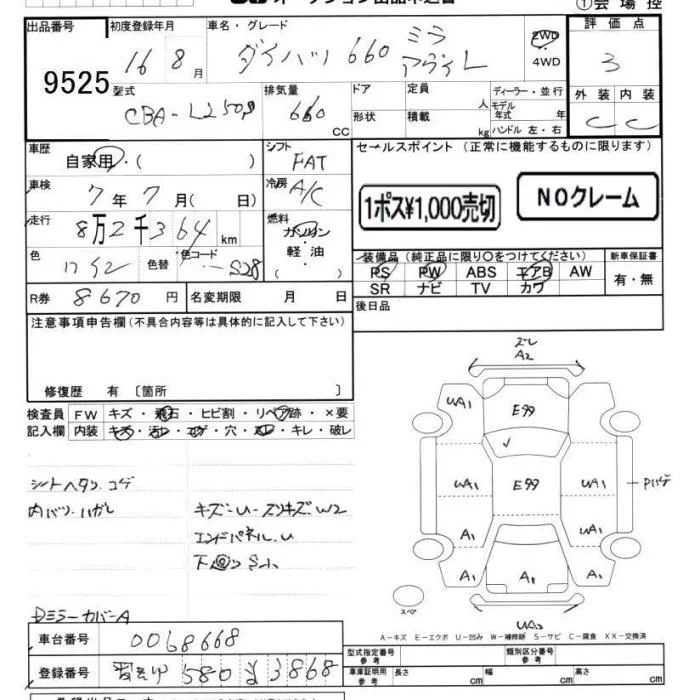 オークション出品申込書
①会場控
出品番号 9525
初度登録年月 16 8月
車名・グレード ダイハツ 660 ミラ アヴィ L
2WD
4WD
評価点 3
型式 CBA-L250S
排気量 660 CC
ドア
形状
定員 人
積載 kg
ディーラー・並行
モデル年式 年
ハンドル 左・右
外装 内装
C C
車歴 自家用・( )
シフト FAT
車検 7年7月( 日)
冷房 A/C
走行 8万2千364 km
燃料 ガソリン・軽油 ( )
色 ワイン 色替 色コード S28
R券 8670円 名変期限 月 日
セールスポイント (正常に機能するものに限ります)
1ポス¥1,000売切
NOクレーム
装備品 (純正品に限り○をつけてください)
新車保証書
PS PW ABS エアB AW
SR ナビ TV カワ
有・無
後日品
注意事項申告欄(不具合内容等は具体的に記入して下さい)
修復歴 有 〔箇所 〕
検査員 FW キズ・飛石・ヒビ割・リペア跡・×要
記入欄 内装 キズ・汚レ・コゲ・穴・スレ・キレ・破レ
シートヘタリ、コゲ
内バリ・ハガレ
キズ-U-スリキズ、W2
エンドパネル、U
下回り S小
Dミラーカバー A
ズレ
A2
UA1
E99
E99
UA1
UA1
Pハゲ
A1
UA1
A1
A1
A1
スペア
UA2
A-キズ E-エクボ U-凹み W-補修跡 S-サビ C-腐食 XX-交換済
車台番号 0068668
登録番号 580 3868
型式指定番号 参考
類別区分番号 参考
車庫証明用 参考 長さ cm 幅 cm 高さ cm